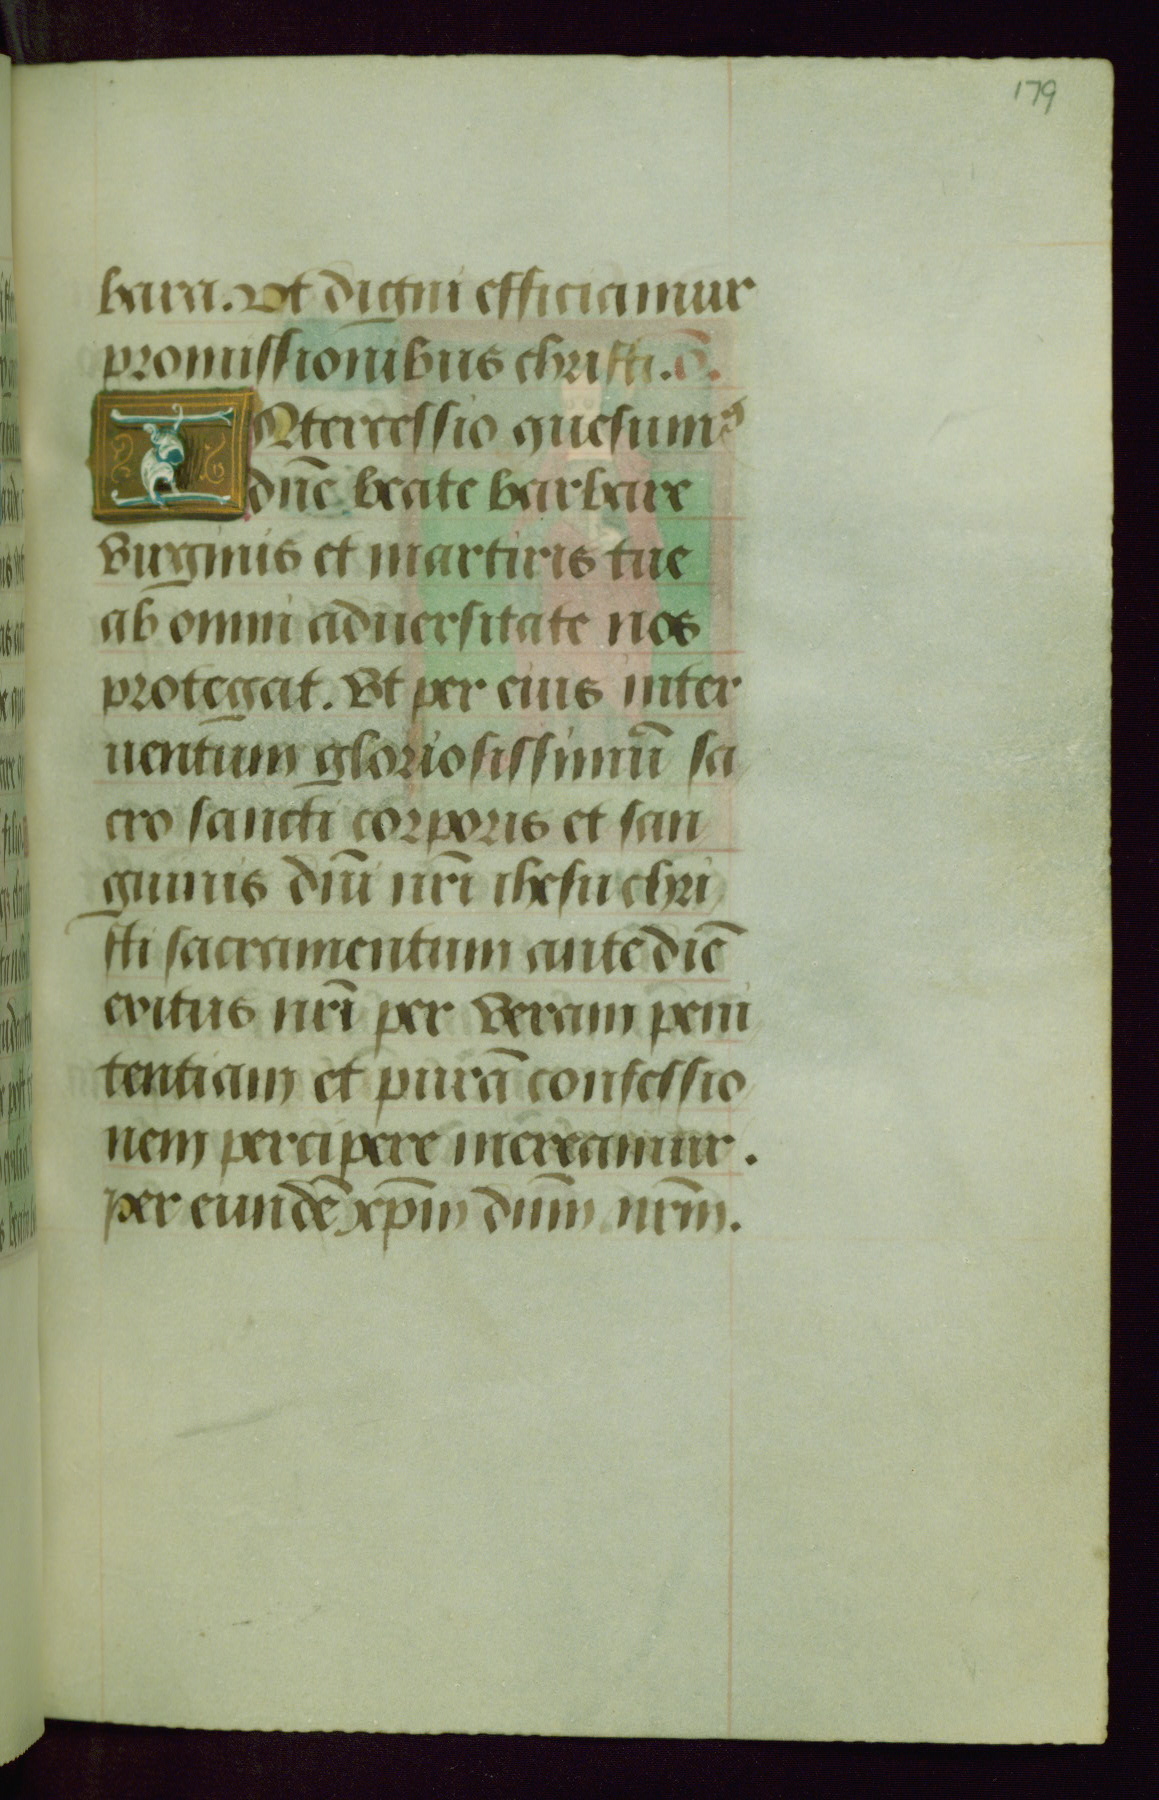 179
bara. Ut digni efficiamur
promissionibus christi. Ō.
INtercessio quesumꝰ
dn̄e beate barbare
virginis et martiris tue
ab omni aduersitate nos
protegat. Vt per eius inter
uentum gloriosissimū sa
cro sancti corporis et san
guinis dn̄i nr̄i ihesu chri
sti sacramentum ante diē
exitus nr̄i per veram peni
tentiam et purā confessio
nem percipere mereamur.
per eundē xp̄m dn̄m nr̄m.